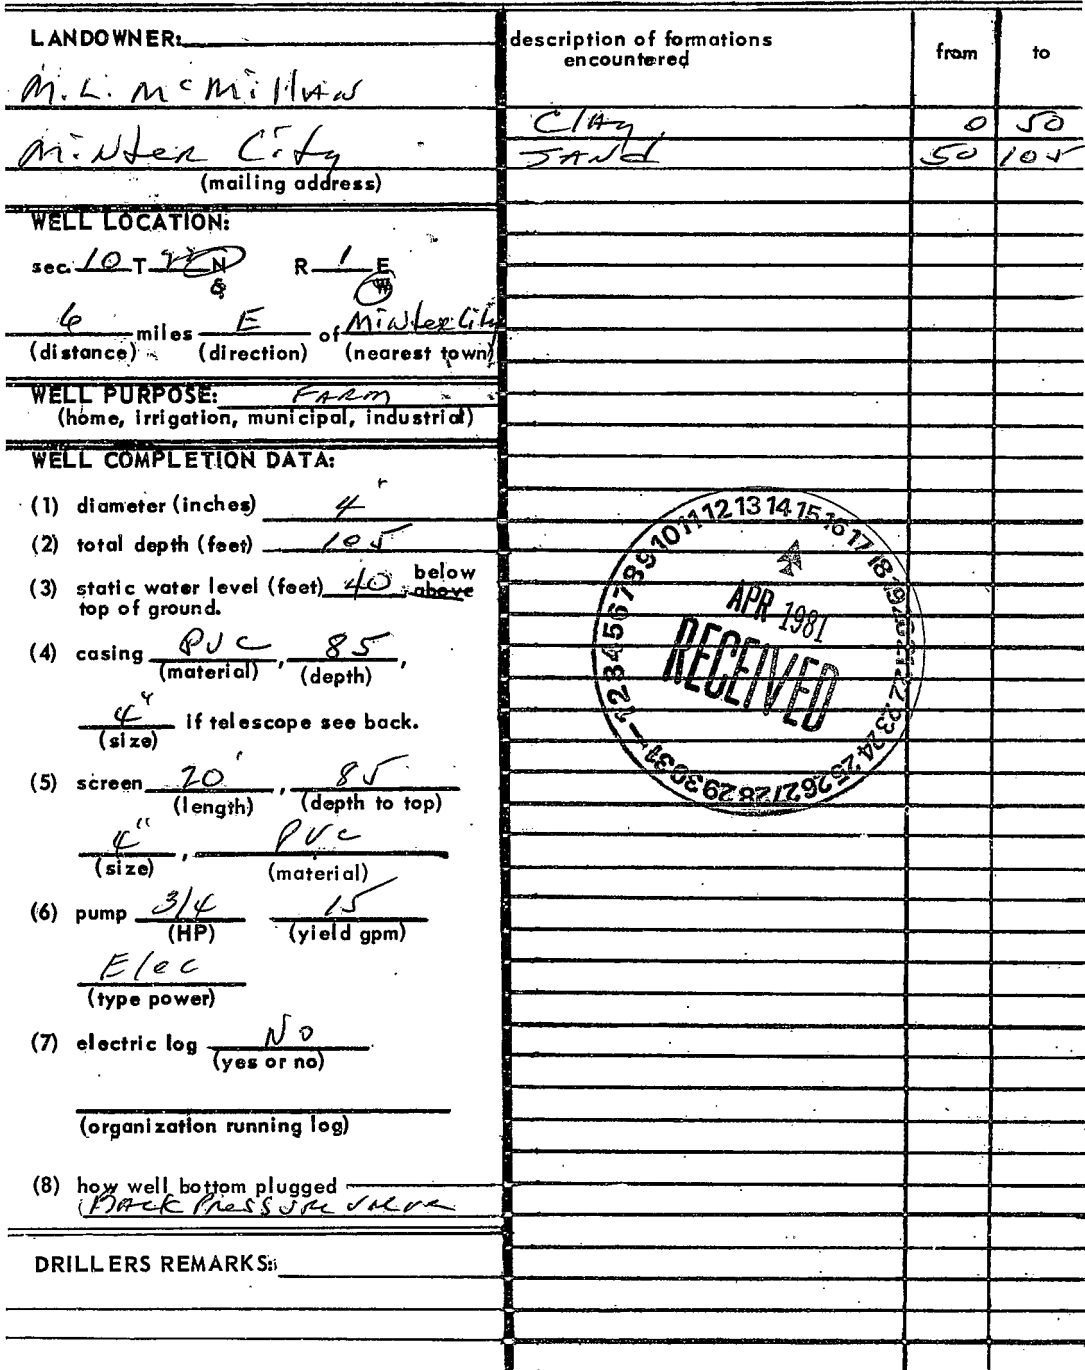 LANDOWNER:
M.L. McMillan
Minter City
(mailing address)
WELL LOCATION:
sec. 10 T N R 1 E
S W
6 miles E of Minter City
(distance) (direction) (nearest town)
WELL PURPOSE: FARM
(home, irrigation, municipal, industrial)
WELL COMPLETION DATA:
(1) diameter (inches) 4"
(2) total depth (feet) 105
(3) static water level (feet) 40 below
above
top of ground.
(4) casing PVC, 85,
(material) (depth)
4" if telescope see back.
(size)
(5) screen 20', 85
(length) (depth to top)
4", PVC
(size) (material)
(6) pump 3/4 15
(HP) (yield gpm)
Elec
(type power)
(7) electric log No
(yes or no)
(organization running log)
(8) how well bottom plugged
Back Pressure Valve
DRILLERS REMARKS:
description of formations from to
encountered
Clay 0 50
SAND 50 105
1 2 3 4 5 6 7 8 9 10 11 12 13 14 15 16 17 18 19 20 21 22 23 24 25 26 27 28 29 30 31
APR 1981
RECEIVED